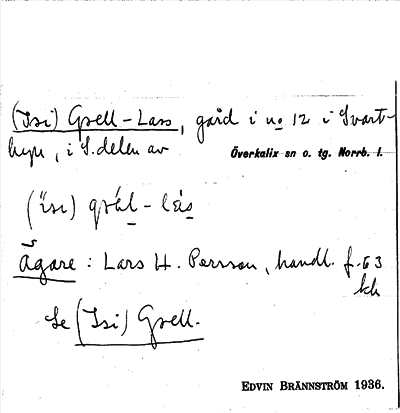 (Isi) Grell-Lass, gård i no 12 i Svart-
byn, i S. delen av
Överkalix sn o. tg. Norrb. l.
( isi)
Ägare : Lars H. Persson, handl. f. 63
Se (Isi) Grell.
EDVIN BRÄNNSTRÖM 1936.